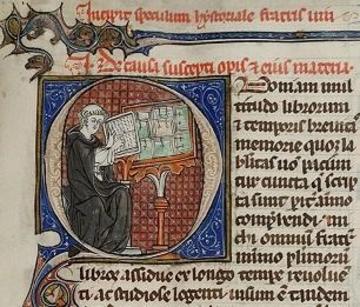 Incipit speculum hystoriale fratris vin
De causa suscepti opis & eius materia.
Quoniam mul
titudo librorum
& temporis breuitas
memorie quoq la
bilitas nō patiun
tur cuncta q scrip
ta sunt pit aīmo
comp̄hendi mi
chi omnium fratrū
minimo plimorū
libros assidue ex longo tempe reuoluē
ti ac studiose legenti uisum ē tandem